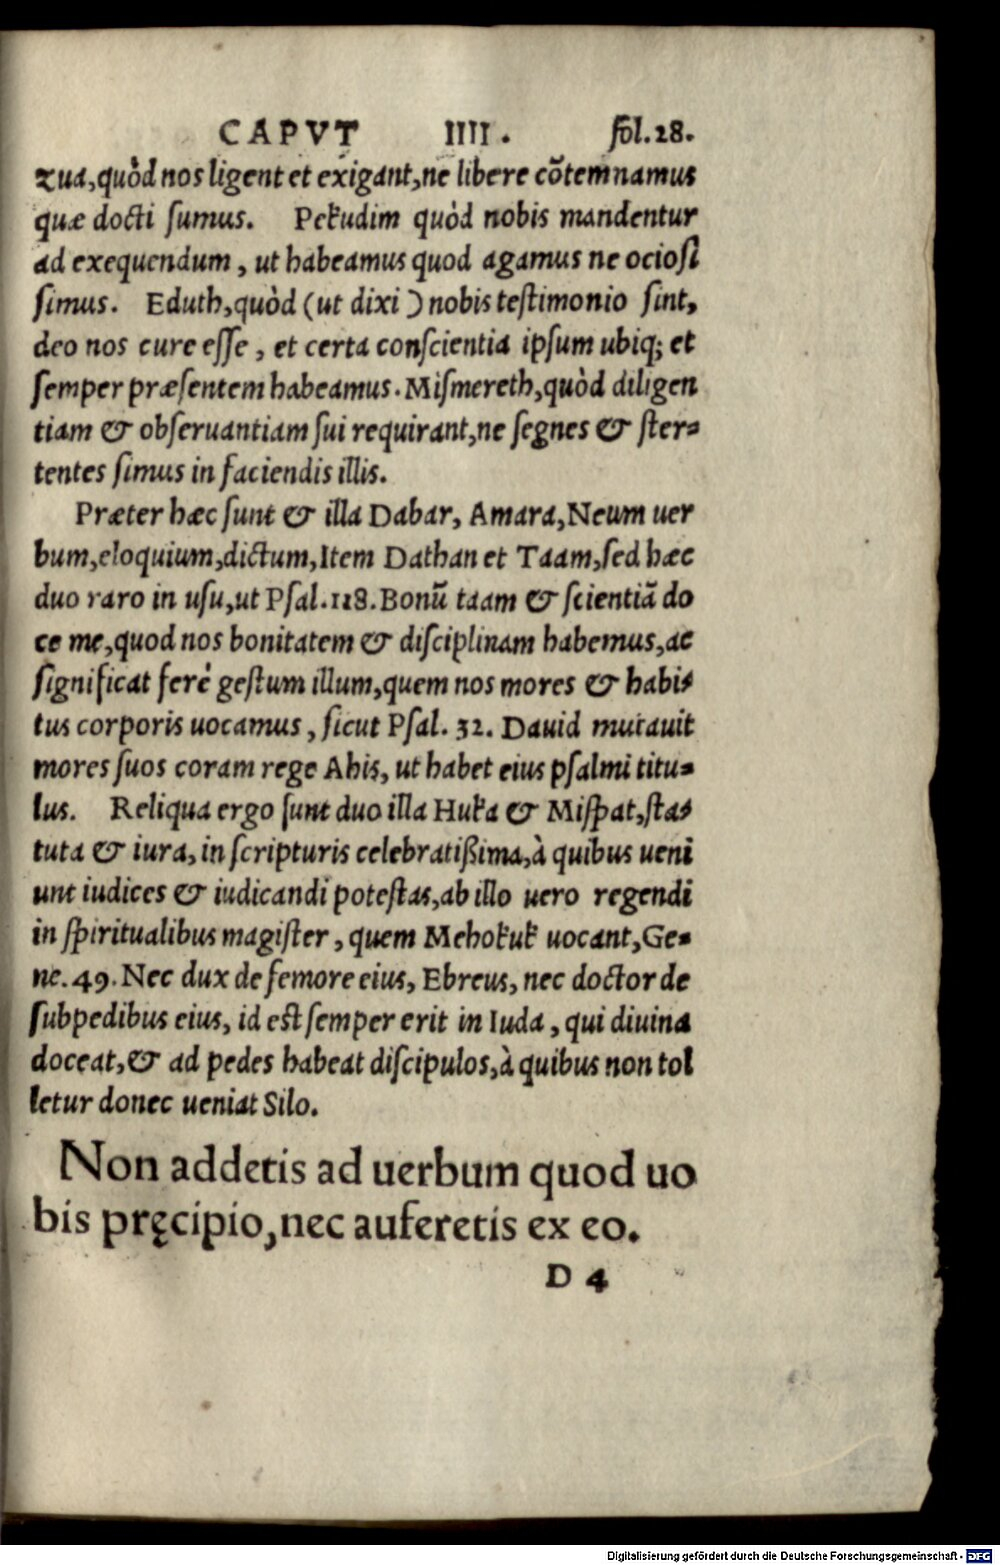 CAPVT IIII. fol. 28.
zua, quòd nos ligent et exigant, ne libere cõtemnamus
quæ docti sumus. Pekudim quòd nobis mandentur
ad exequendum, ut habeamus quod agamus ne ociosi
simus. Eduth, quòd (ut dixi) nobis testimonio sint,
deo nos cure esse, et certa conscientia ipsum ubiq; et
semper præsentem habeamus. Mismereth, quòd diligen
tiam & obseruantiam sui requirant, ne segnes & ster⸗
tentes simus in faciendis illis.
Præter hæc sunt & illa Dabar, Amara, Neum uer
bum, eloquium, dictum, Item Dathan et Taam, sed hæc
duo raro in usu, ut Psal. 118. Bonũ taam & scientiã do
ce me, quod nos bonitatem & disciplinam habemus, ac
significat ferè gestum illum, quem nos mores & habi⸗
tus corporis uocamus, sicut Psal. 32. Dauid mutauit
mores suos coram rege Ahis, ut habet eius psalmi titu⸗
lus. Reliqua ergo sunt duo illa Huka & Mispat, sta⸗
tuta & iura, in scripturis celebratißima, à quibus ueni
unt iudices & iudicandi potestas, ab illo uero regendi
in spiritualibus magister, quem Mehokuk uocant, Ge⸗
ne. 49. Nec dux de femore eius, Ebreus, nec doctor de
subpedibus eius, id est semper erit in Iuda, qui diuina
doceat, & ad pedes habeat discipulos, à quibus non tol
letur donec ueniat Silo.
Non addetis ad uerbum quod uo
bis pręcipio, nec auferetis ex eo.
D 4
Digitalisierung gefördert durch die Deutsche Forschungsgemeinschaft - DFG